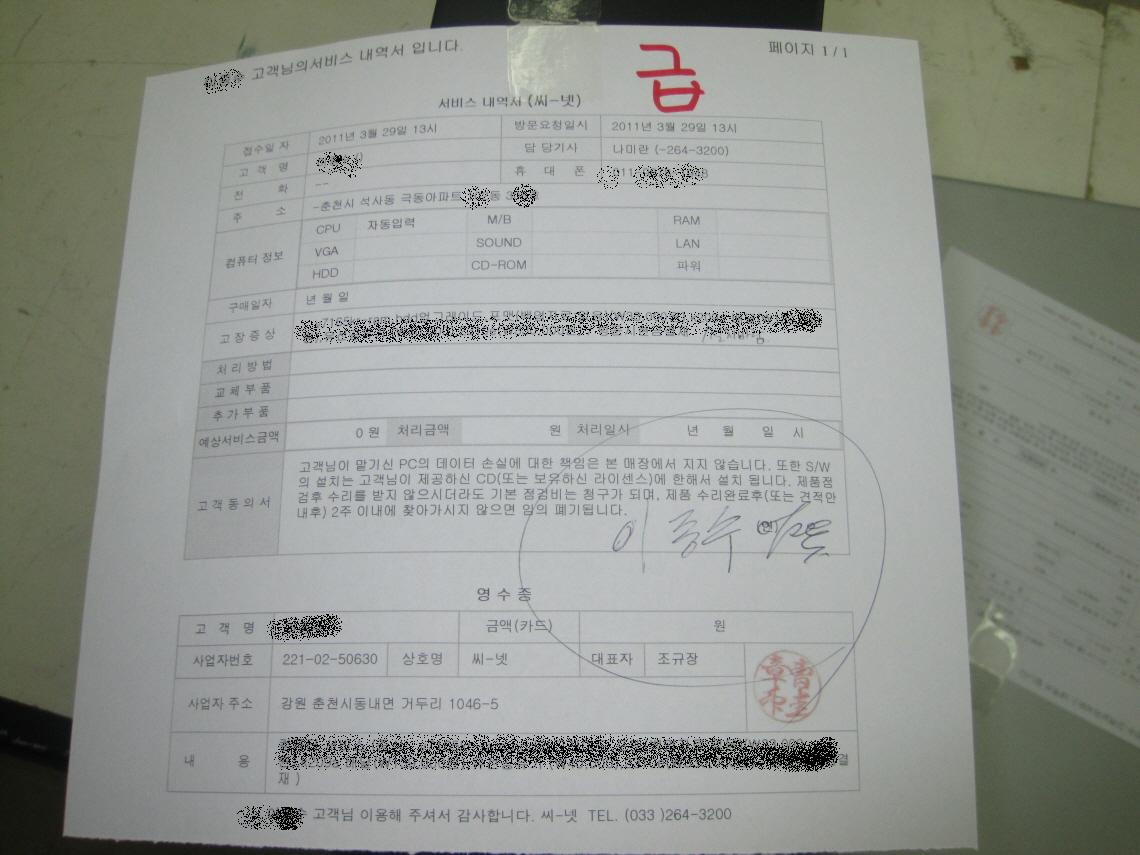 고객님의서비스 내역서 입니다.
급
페이지 1 / 1
서비스 내역서 (씨-넷)
접수일 자 2011년 3월 29일 13시 방문요청일시 2011년 3월 29일 13시
고 객 명 담 당기사 나미란 (-264-3200)
전 화 -- 휴 대 폰
주 소 -춘천시 석사동 극동아파트
컴퓨터 정보 CPU 자동입력 M/B RAM
VGA SOUND LAN
HDD CD-ROM 파워
구매일자 년 월 일
고 장 증 상
처 리 방 법
교 체 부 품
추 가 부 품
예상서비스금액 0 원 처리금액 원 처리일시 년 월 일 시
고 객 동 의 서 고객님이 맡기신 PC의 데이터 손실에 대한 책임은 본 매장에서 지지 않습니다. 또한 S/W
의 설치는 고객님이 제공하신 CD(또는 보유하신 라이센스)에 한해서 설치 됩니다. 제품점
검후 수리를 받지 않으시더라도 기본 점검비는 청구가 되며, 제품 수리완료후(또는 견적안
내후) 2주 이내에 찾아가시지 않으면 임의 폐기됩니다.
(인)
영 수 증
고 객 명 금액(카드) 원
사업자번호 221-02-50630 상호명 씨-넷 대표자 조규장
사업자 주소 강원 춘천시동내면 거두리 1046-5
내 용 결
재 )
고객님 이용해 주셔서 감사합니다. 씨-넷 TEL. (033 )264-3200